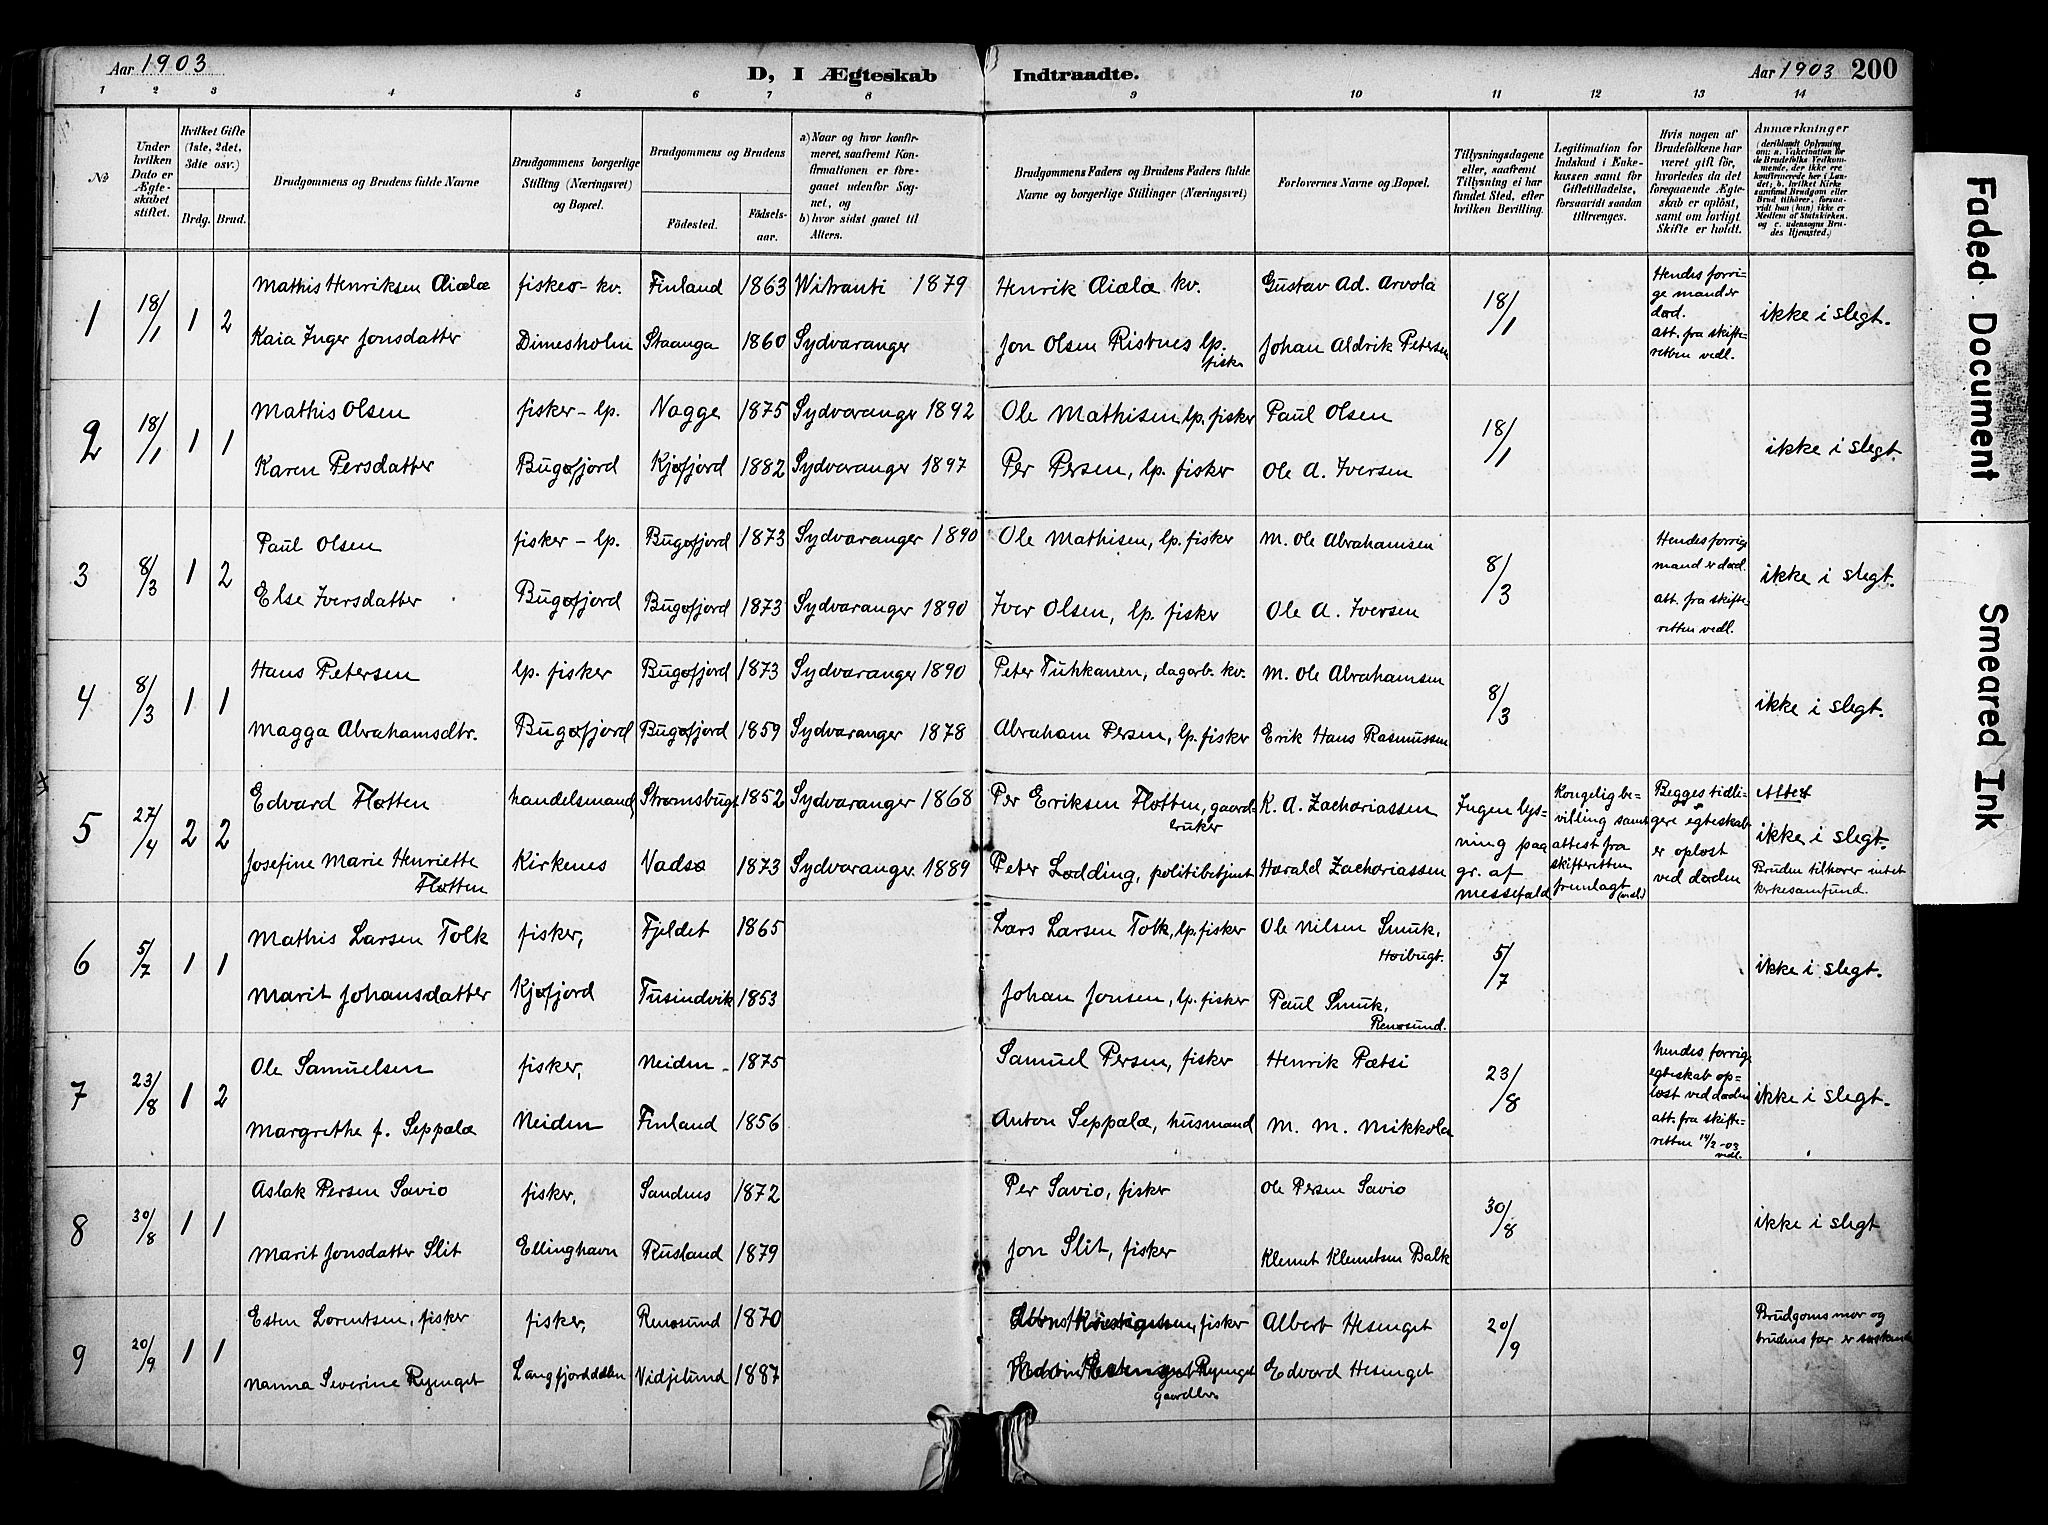 Aar 1903
D, I Ægteskab Indtraadte.
Aar 1903 200
1 2 3 4 5 6 7 8 9 10 11 12 13 14
No
Under hvilken Dato er Ægteskabet stiftet.
Hvilket Gifte (1ste, 2det, 3die osv.)
Brdg. Brud.
Brudgommens og Brudens fulde Navne
Brudgommens borgerlige Stilling (Næringsvei) og Bopæl.
Brudgommens og Brudens
Födested.
Födselsaar.
a) Naar og hvor konfirmeret, saafremt Konfirmationen er foregaaet udenfor Sognet, og
b) hvor sidst gaaet til Alters.
Brudgommens Faders og Brudens Faders fulde Navne og borgerlige Stillinger (Næringsvei)
Forlovernes Navne og Bopæl.
Tillysningsdagene eller, saafremt Tillysning ei har fundet Sted, efter hvilken Bevilling.
Legitimation for Indskud i Enkekassen samt for Giftetilladelse, forsaavidt saadan tiltrænges.
Hvis nogen af Brudefolkene har været gift før, hvorledes da det foregaaende Ægteskab er oplöst, samt om lovligt Skifte er holdt.
Anmærkninger
1 18/1 1 2 Mathis Henriksen Aiala fisker- kv. Finland 1863 Witranti 1879 Henrik Aiala kv. Gustav Ad. Arvola 18/1 Hendes forrige mand er død. att. fra skifteretten vedl. ikke i slegt.
Kaia Inger Jonsdatter Dimesholm Staanga 1860 Sydvaranger Jon Olsen Ristnes lp. fisker Johan Aldrik Petersen
2 18/1 1 1 Mathis Olsen fisker - lp. Nagge 1875 Sydvaranger 1892 Ole Mathisen lp. fisker Paul Olsen 18/1 ikke i slegt.
Karen Persdatter Bugøfjord Kjøfjord 1882 Sydvaranger 1897 Per Persen, lp. fisker Ole A. Iversen
3 8/3 1 2 Paul Olsen fisker - lp. Bugøfjord 1873 Sydvaranger 1890 Ole Mathisen, lp. fisker M. Ole Abrahamsen 8/3 Hendes forrige mand er død. att. fra skifteretten vedl. ikke i slegt.
Else Iversdatter Bugøfjord Bugøfjord 1873 Sydvaranger 1890 Iver Olsen, lp. fisker Ole A. Iversen
4 8/3 1 1 Hans Petersen lp. fisker Bugøfjord 1873 Sydvaranger 1890 Peter Tuhkanen, dagarb. kv. M. Ole Abrahamsen 8/3 ikke i slegt.
Magga Abrahamsdtr. Bugøfjord Bugøfjord 1859 Sydvaranger 1878 Abraham Persen, lp. fisker Erik Hans Rasmussen
5 27/4 2 2 Edvard Flotten handelsmand, Strømsbugt 1852 Sydvaranger 1868 Per Eriksen Flotten, gaardbruker K. A. Zachariassen Ingen lysning paa gr. af messefald Kongelig bevilling samt attest fra skifteretten fremlagt (vedl.) Begges tidligere egteskab er opløst ved døden Attest ikke i slegt. Bruden tilhører intet kirkesamfund.
Josefine Marie Henriette Flotten Kirkenes Vadsø 1873 Sydvaranger 1889 Peter Lødding, politibetjent Harald Zachariassen
6 5/7 1 1 Mathis Larsen Tolk fisker, Fjeldet 1865 Lars Larsen Tolk, lp. fisker Ole Nilsen Smuk, Høibugt. 5/7 ikke i slegt.
Marit Johansdatter Kjøfjord Tusindvik 1853 Johan Jonsen, lp. fisker Paul Smuk, Renøsund.
7 23/8 1 2 Ole Samuelsen fisker, Neiden 1875 Samuel Persen, fisker Henrik Pætsi 23/8 hendes forrige egteskab opløst ved døden att. fra skifteretten 14/2-03 vedl. ikke i slegt.
Margrethe f. Seppala Neiden Finland 1856 Anton Seppala, husmand M. M. Mikkola
8 30/8 1 1 Aslak Persen Savio fisker, Sandnes 1872 Per Savio, fisker Ole Persen Savio 30/8 ikke i slegt
Marit Jonsdatter Slit Ellinghavn Rusland 1879 Jon Slit, fisker Klemet Klemetsen Balk
9 20/9 1 1 Esten Lorentsen, fisker fisker, Renøsund 1870 fisker Albert Hesinget 20/9 Brudgoms mor og brudens far er søskende
Nanna Severine Ryenget Langfjorddalen Vidjelund 1887 Ryenget gaardbr. Edvard Hesinget
Faded Document
Smeared Ink